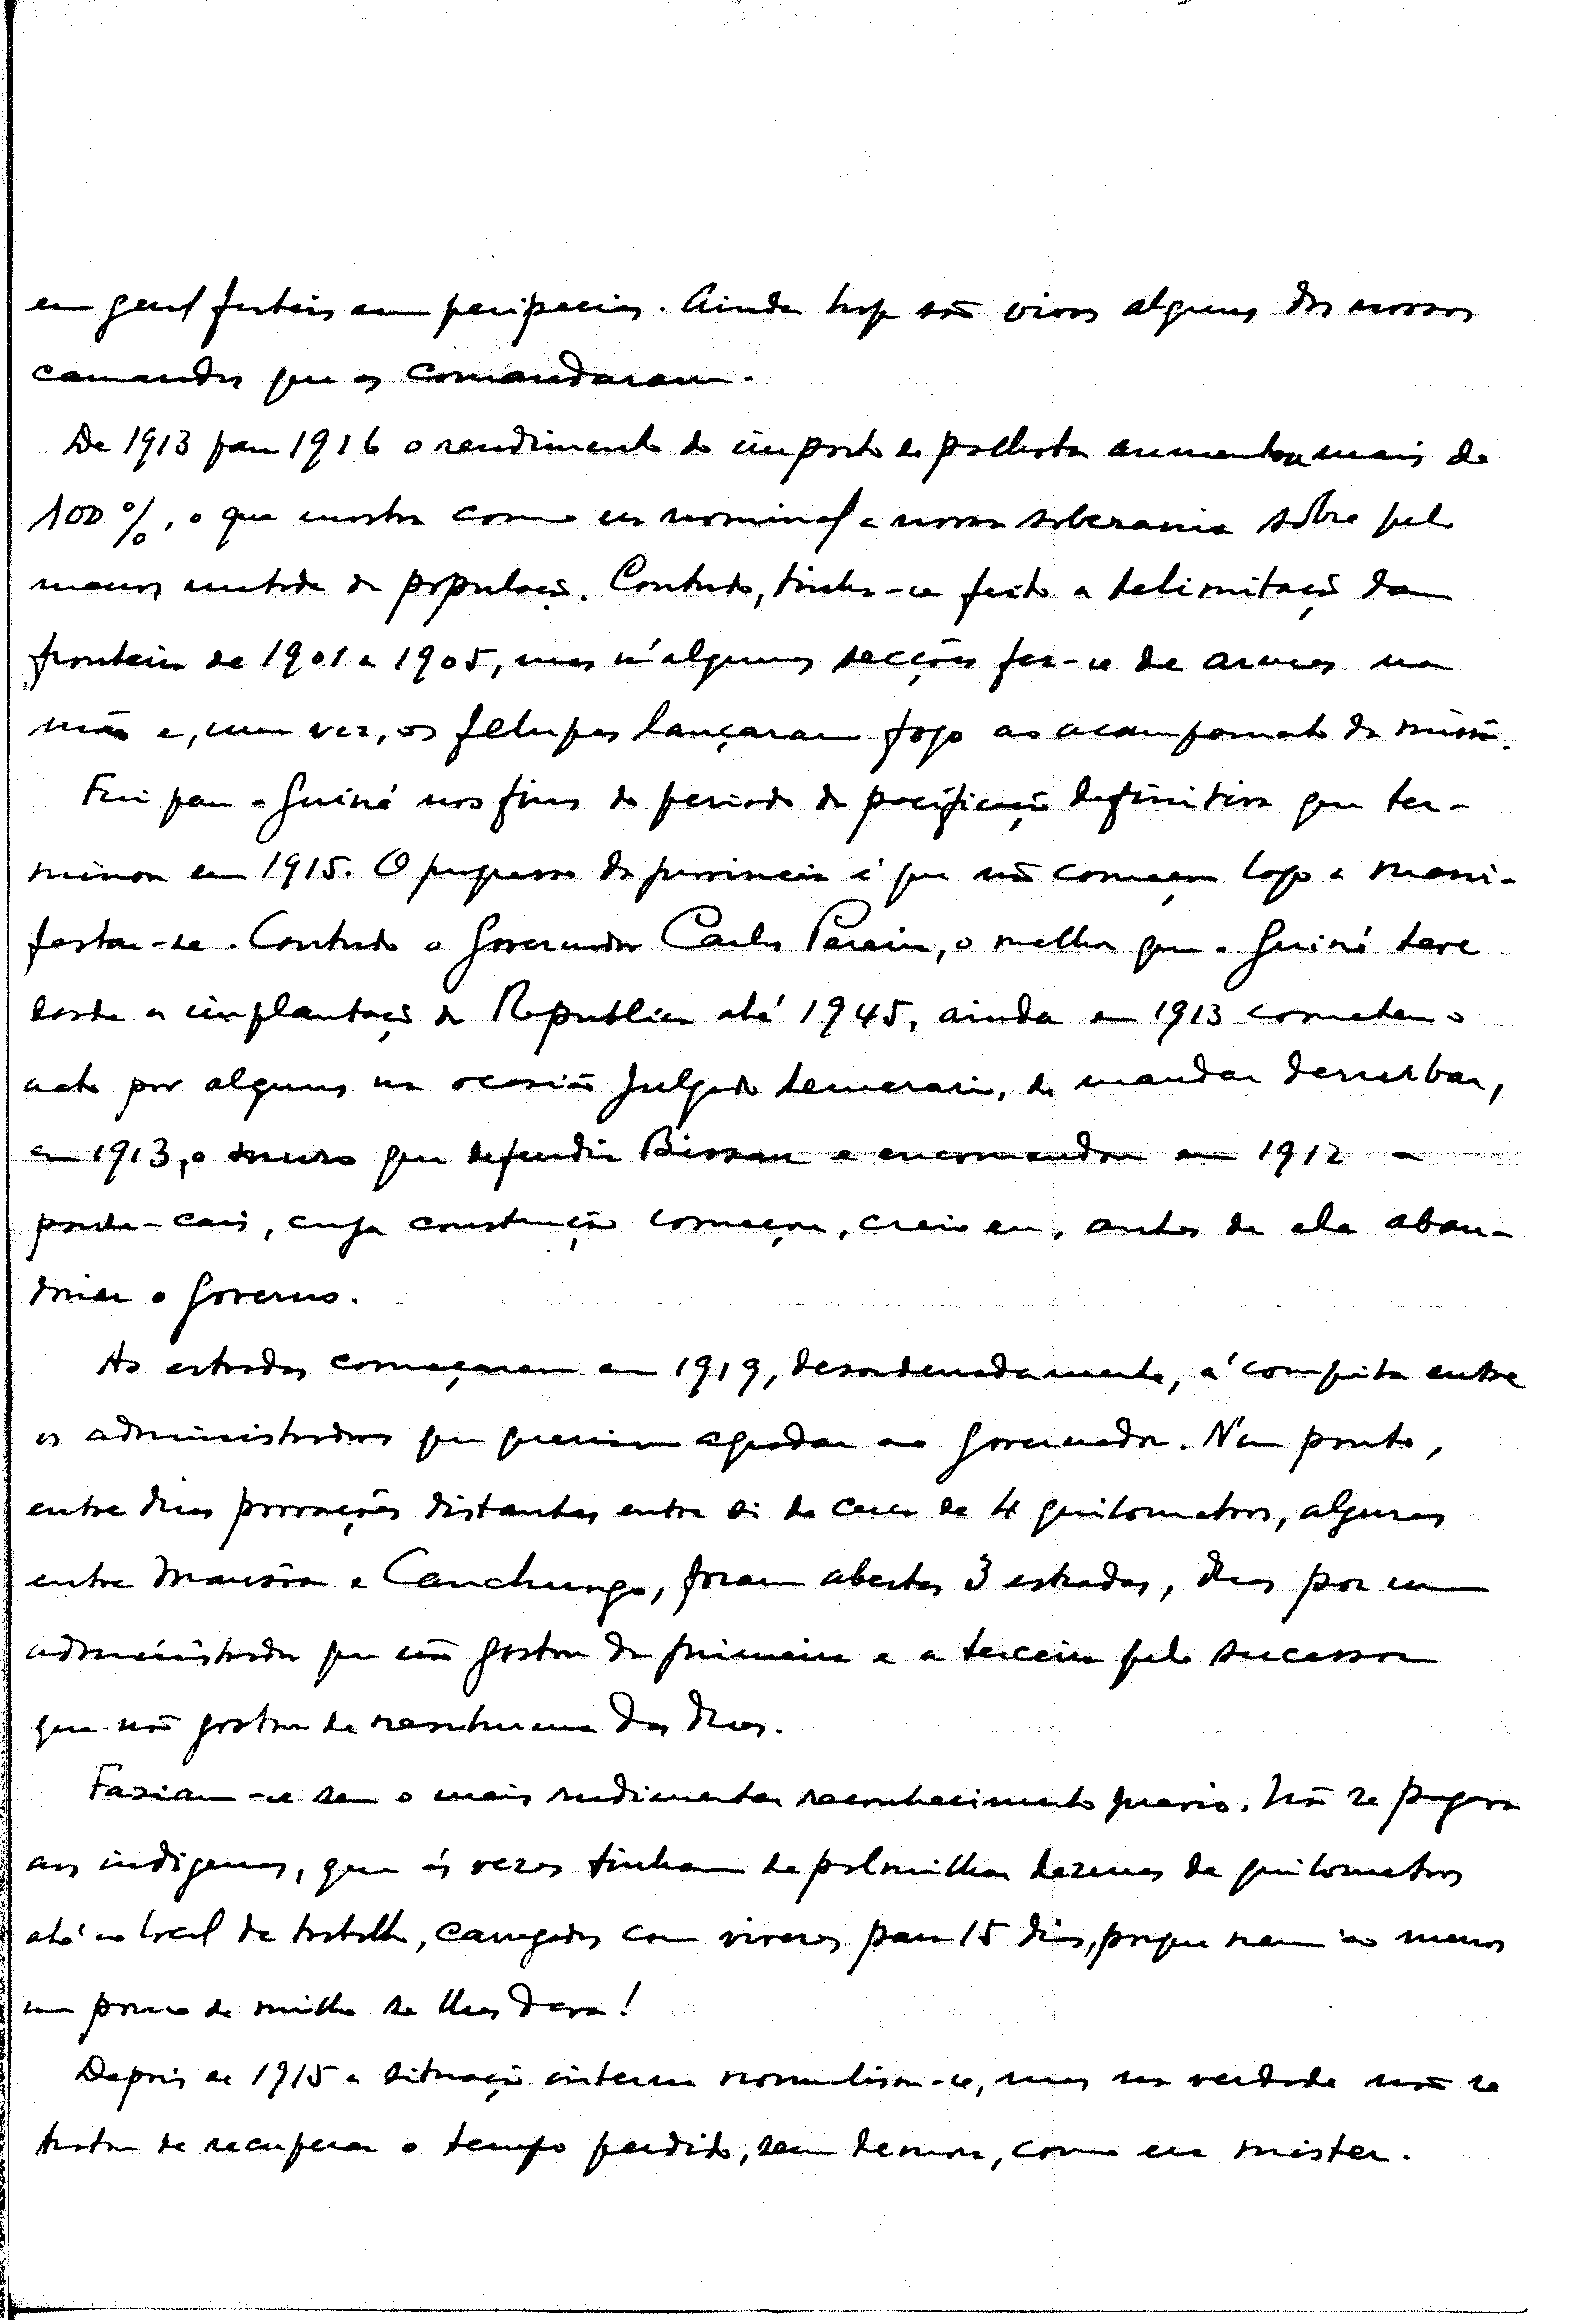 em geral ferteis em peripecias. Ainda hoje são vivos alguns dos nossos
camaradas que os comandaram.
De 1913 para 1916 o rendimento do imposto de palhota aumentou mais de
100%, o que mostra como era nominal a nossa soberania sôbre pelo
menos metade da população. Contudo, tinha-se feito a delimitação da
fronteira de 1901 a 1905, mas n'algumas secções fez-se de armas na
mão e, uma vez, os felupes lançaram fogo ao acampamento da missão.
Fui para a Guiné nos fins do periodo da pacificação definitiva que ter-
minou em 1915. O progresso da provincia é que não começou logo a mani-
festar-se. Contudo o Governador Carlos Pereira, o melhor que a Guiné teve
desde a implantação da Republica até 1945, ainda em 1913 cometeu o
acto por alguns na ocasião julgado temerario, de mandar derrubar,
em 1913, o muro que defendia Bissau e encomendou em 1912 a
ponte-cais, cuja construção começou, creio eu, antes de ele aban-
donar o Governo.
As estradas começaram em 1919, desordenadamente, á compita entre
os administradores que queriam agradar ao Governador. N'um ponto,
entre duas povoações distantes entre si de cerca de 4 quilometros, algures
entre Mansôa e Canchungo, foram abertas 3 estradas, duas por um
administrador que não gostou da primeira e a terceira pelo sucessor
que não gostou de nenhuma das duas.
Faziam-se sem o mais rudimentar reconhecimento previo. Não se pagava
aos indigenas, que ás vezes tinham de palmilhar dezenas de quilometros
até ao local de trabalho, carregados com viveres para 15 dias, porque nem ao menos
um pouco de milho se lhes dava!
Depois de 1915 a situação interna normalisou-se, mas na verdade não se
tratou de recuperar o tempo perdido, sem demora, como era mister.